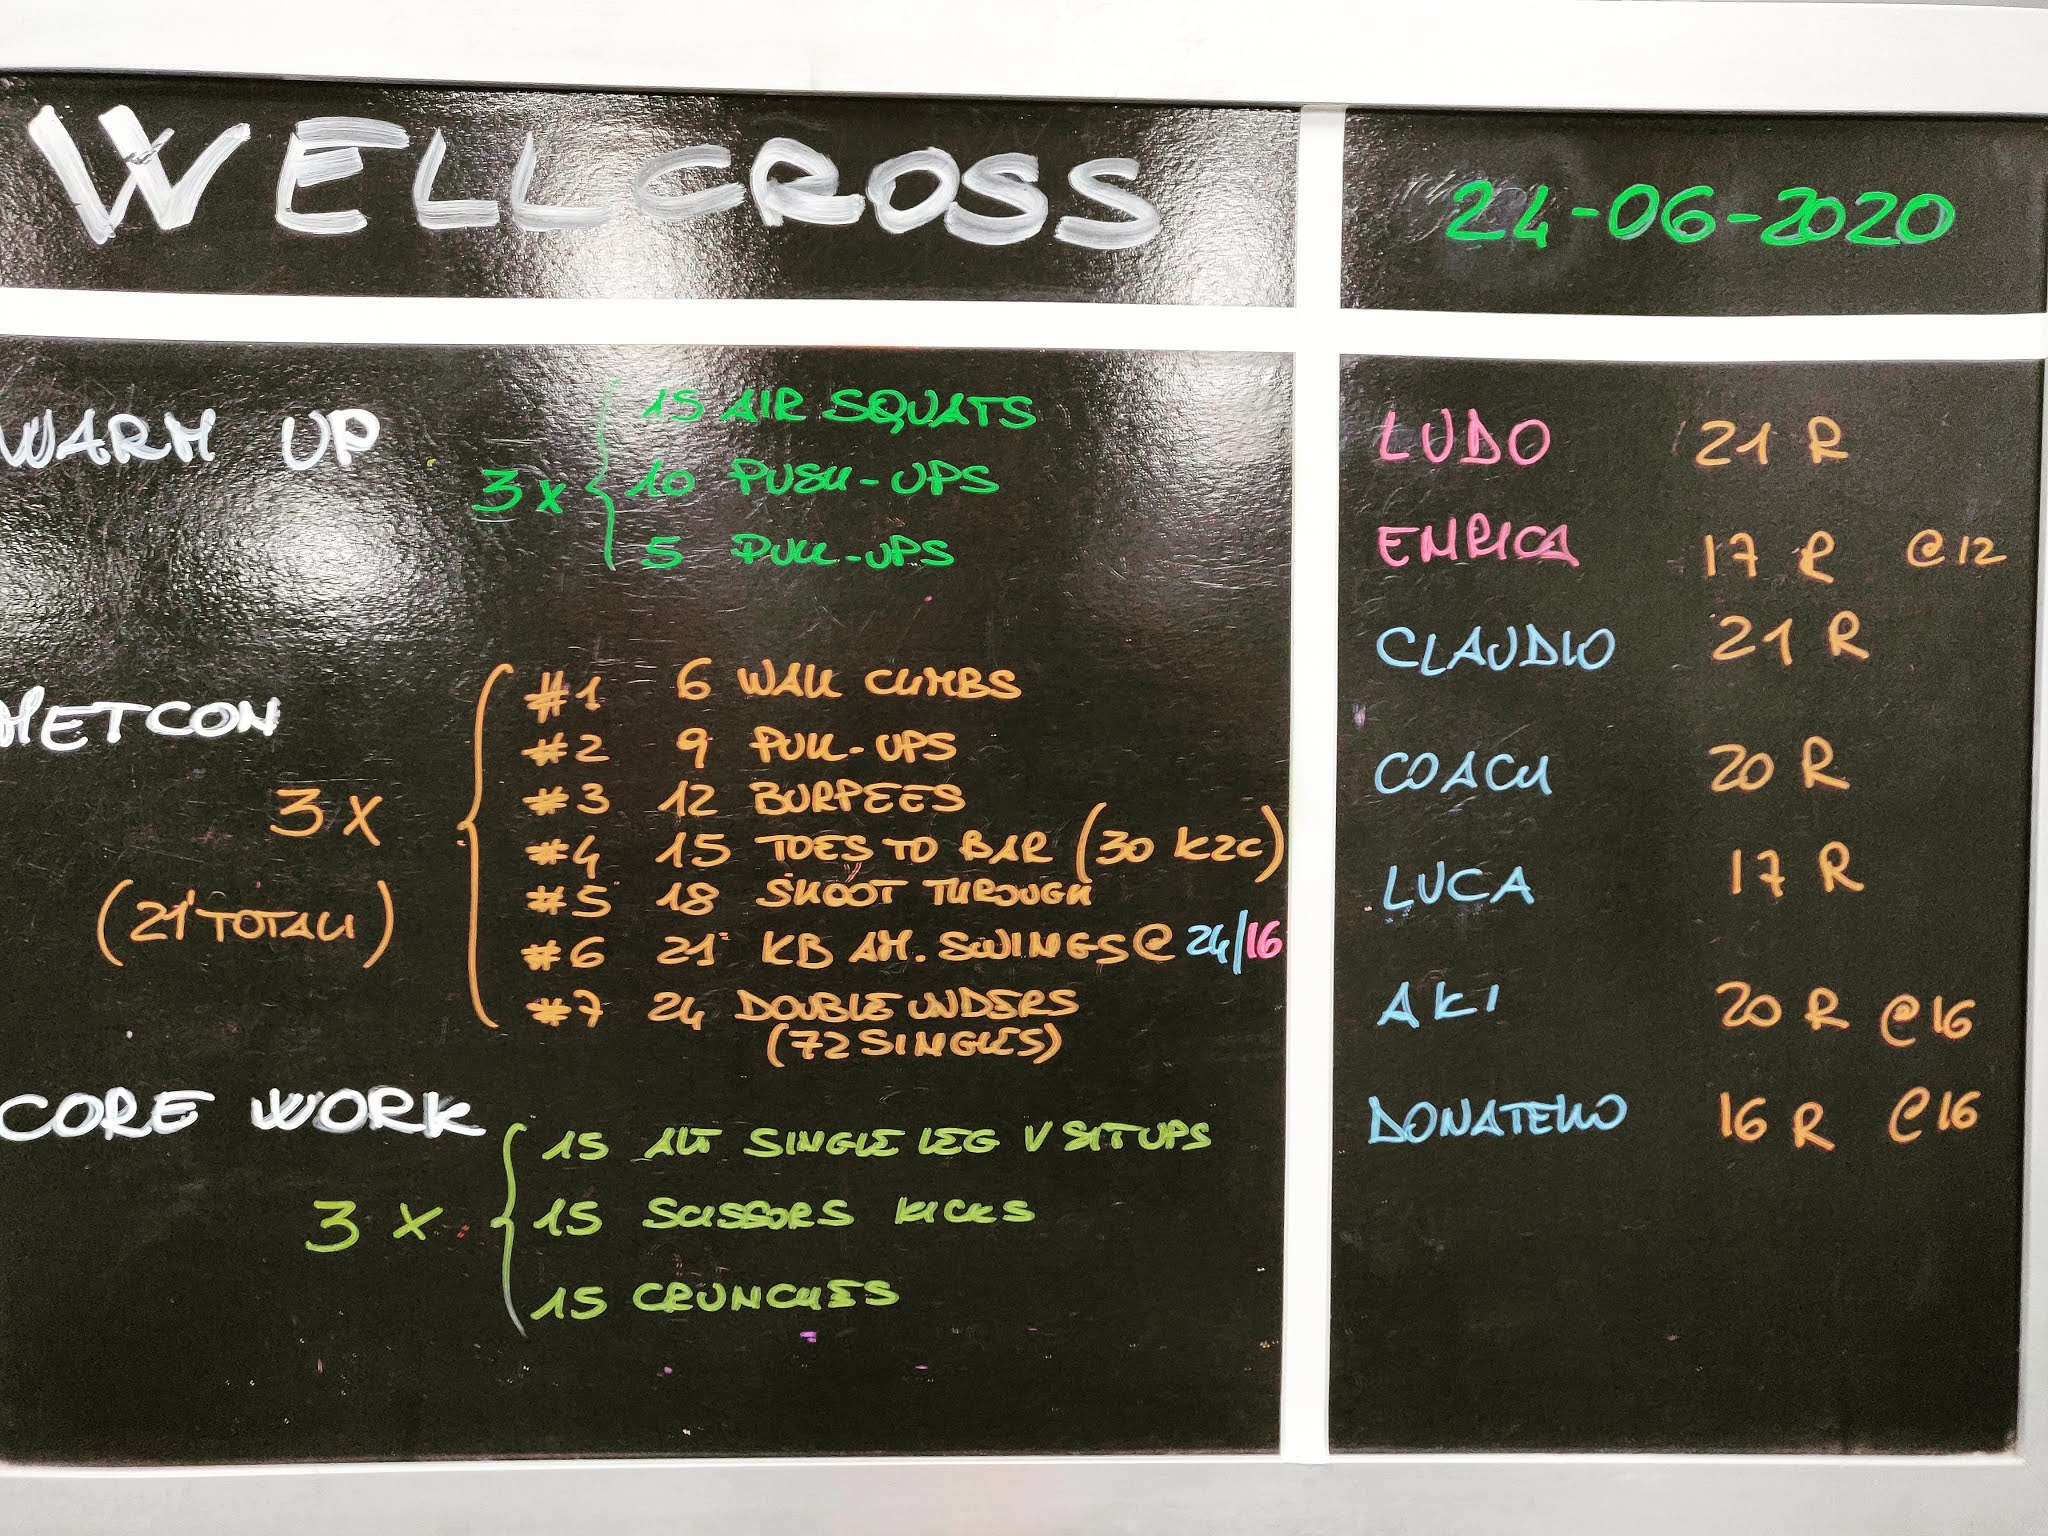 WELLCROSS
24-06-2020
WARM UP
3 x
15 AIR SQUATS
10 PUSH-UPS
5 PULL-UPS
METCON
3 x
(21' TOTALI)
#1 6 WALL CLIMBS
#2 9 PULL-UPS
#3 12 BURPEES
#4 15 TOES TO BAR (30 K2C)
#5 18 SHOOT THROUGH
#6 21 KB AM. SWINGS @ 24/16
#7 24 DOUBLE UNDERS
(72 SINGLES)
CORE WORK
3 x
15 ALT SINGLE LEG V SIT UPS
15 SCISSORS KICKS
15 CRUNCHES
LUDO 21 R
ENRICA 17 R @12
CLAUDIO 21 R
COACH 20 R
LUCA 17 R
AKI 20 R @16
DONATELLO 16 R @16